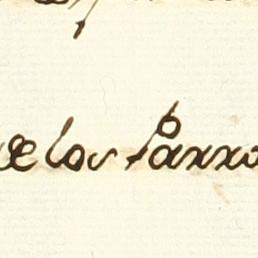 de los Parro